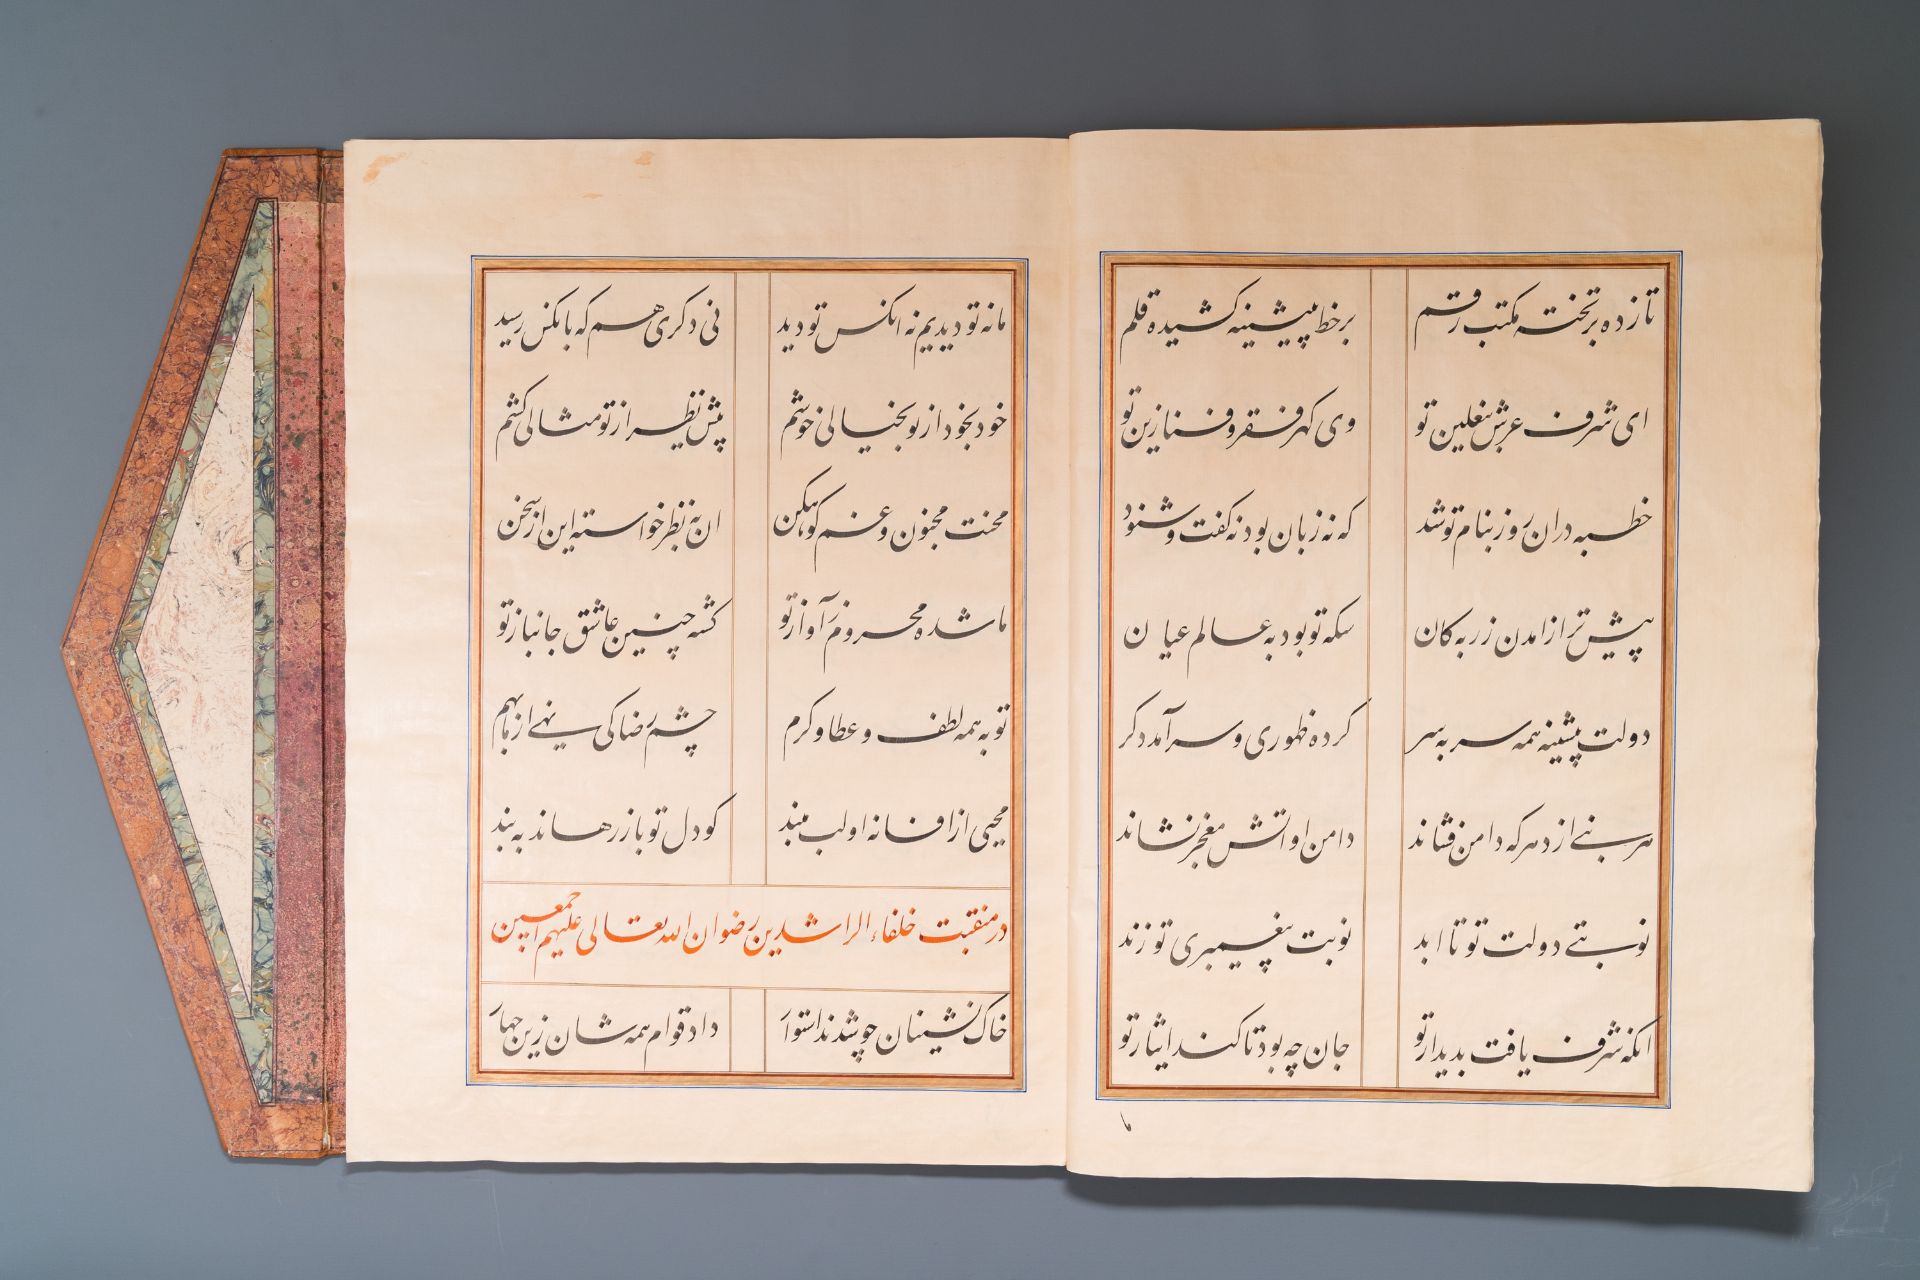 تا زده بر تخته مکتب رقم بر خط پیشینه کشیده قلم
ای شرف عرش بنعلین تو وی کهر فقر و فنا زین تو
خطبه دران روز بنام تو شد که نه زبان بود نه کفت و شنود
پیش تر از امدن زر به کان سکه تو بود به عالم عیان
دولت پیشینه همه سر به سر کرده ظهوری و سرآمد دکر
هر نبیی از دهر که دامن فشاند دامن او اتش معجز نشاند
نوبتی دولت تو تا ابد نوبت پیغمبری تو زند
انکه شرف یافت بدیدار تو جان چه بود تا کند ایثار تو
ما
ما نه تو دیدیم نه انکس تو دید نی دکری هم که بانکس رسید
خود بخود از تو بخیالی خوشم پیش نظر از تو مثالی کشم
محنت مجنون و غم کوهکن ان به نظر خواسته این از سخن
ما شده محروم ز آواز تو کشته چنین عاشق جانباز تو
تو به همه لطف و عطا و کرم چشم رضا کی نهی از ما بهم
محیی از افسانه او لب مبند کو دل تو باز رهاند به بند
در منقبت خلفاء الراشدین رضوان الله تعالی علیهم اجمعین
خاک نشینان چو شدند استوار داد قوام همه شان زین چهار